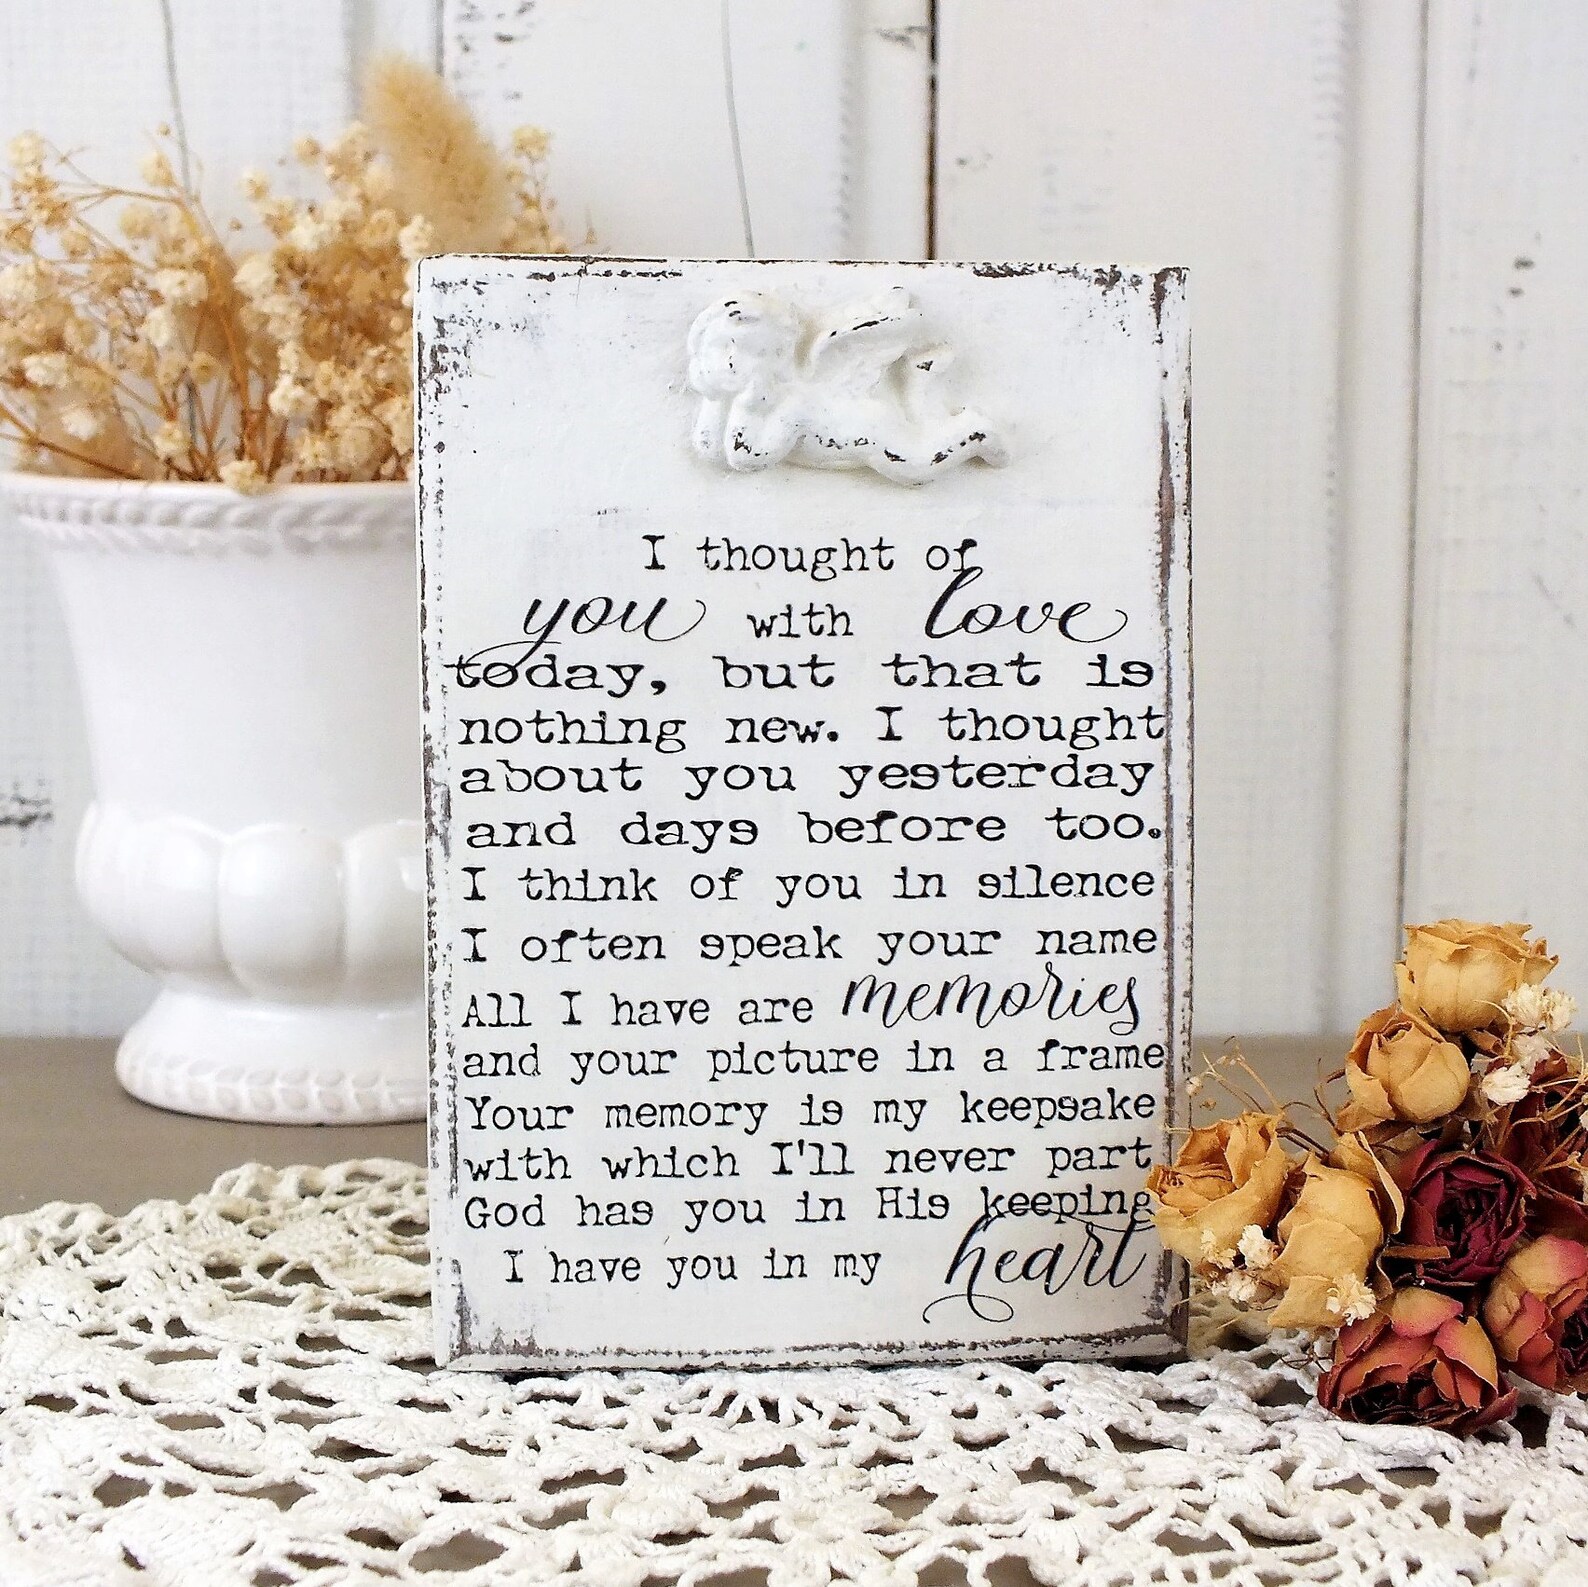 I thought of
you with love
today, but that is
nothing new. I thought
about you yesterday
and days before too.
I think of you in silence
I often speak your name
All I have are memories
and your picture in a frame
Your memory is my keepsake
with which I'll never part
God has you in His keeping
I have you in my heart